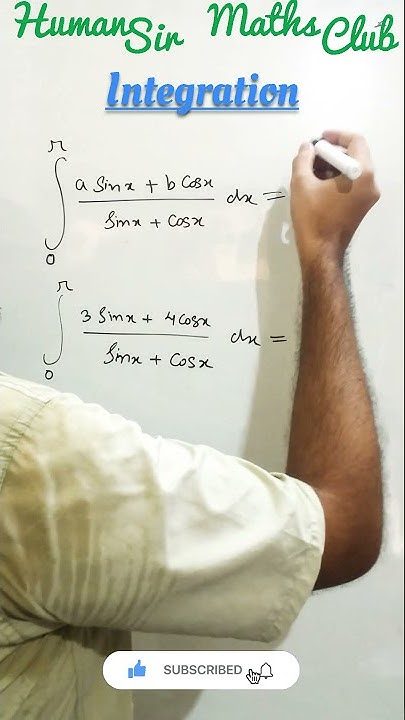 Human Sir Maths Club
Integration
π
∫ a Sinx + b Cosx / Sinx + Cosx dx =
0
π
∫ 3 Sinx + 4 Cosx / Sinx + Cosx dx =
0
SUBSCRIBED